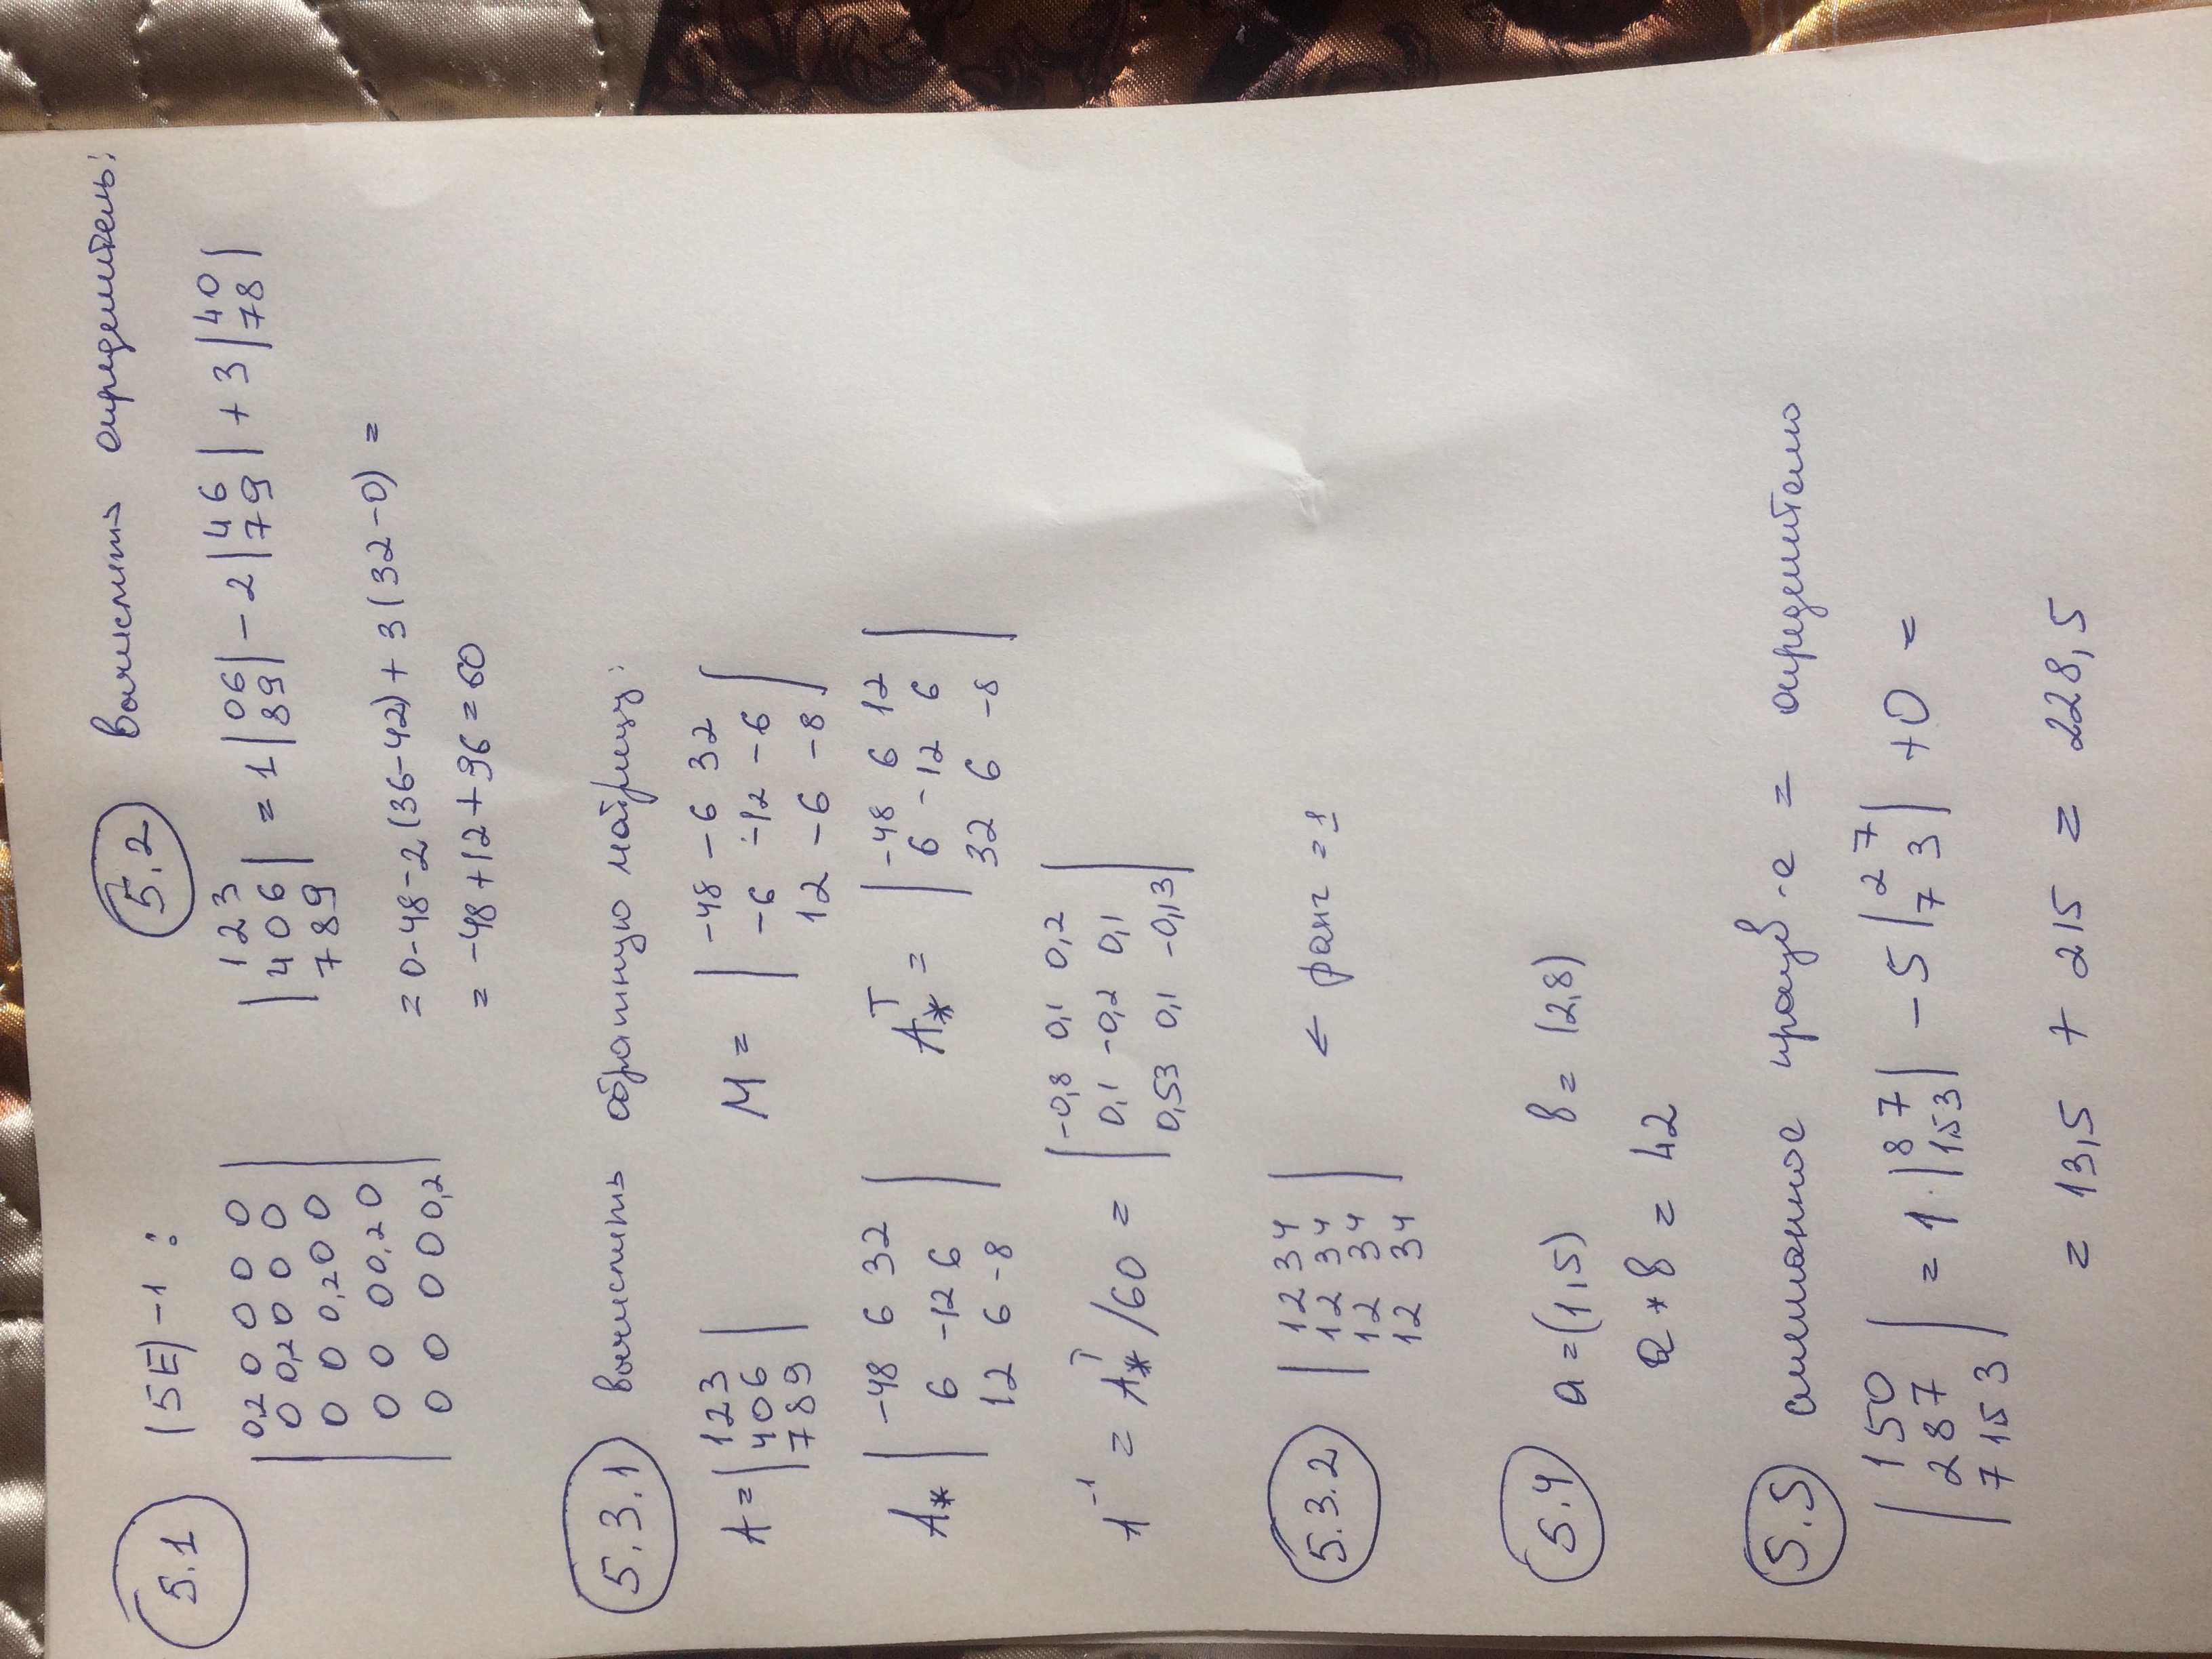 5.1 (5E)-1 :
0,2 0 0 0 0
0 0,2 0 0 0
0 0 0,2 0 0
0 0 0 0,2 0
0 0 0 0 0,2
5.2 вычислить определитель:
|1 2 3|
|4 0 6| = 1 |0 6| - 2 |4 6| + 3 |4 0|
|7 8 9| |8 9| |7 9| |7 8|
= 0-48-2(36-42)+3(32-0) =
= -48+12+96=60
5.3.1 вычислить обратную матрицу:
A = |1 2 3| M = |-48 -6 32|
|4 0 6| |-6 -12 -6|
|7 8 9| |12 -6 -8|
A* |-48 6 32| A*ᵀ = |-48 6 12|
|6 -12 6| |6 -12 6|
|12 6 -8| |32 6 -8|
A⁻¹ = A*ᵀ/60 = |-0,8 0,1 0,2|
|0,1 -0,2 0,1|
|0,53 0,1 -0,13|
5.3.2 |1 2 3 4| ← ранг = 1
|1 2 3 4|
|1 2 3 4|
|1 2 3 4|
5.4 a=(1,5) b=(2,8)
a*b = 42
5.5 смешанное произв-е = определителю
|1 5 0|
|2 8 7| = 1·|8 7| - 5 |2 7| + 0 =
|7 1,5 3| |1,5 3| |7 3|
= 13,5 + 215 = 228,5